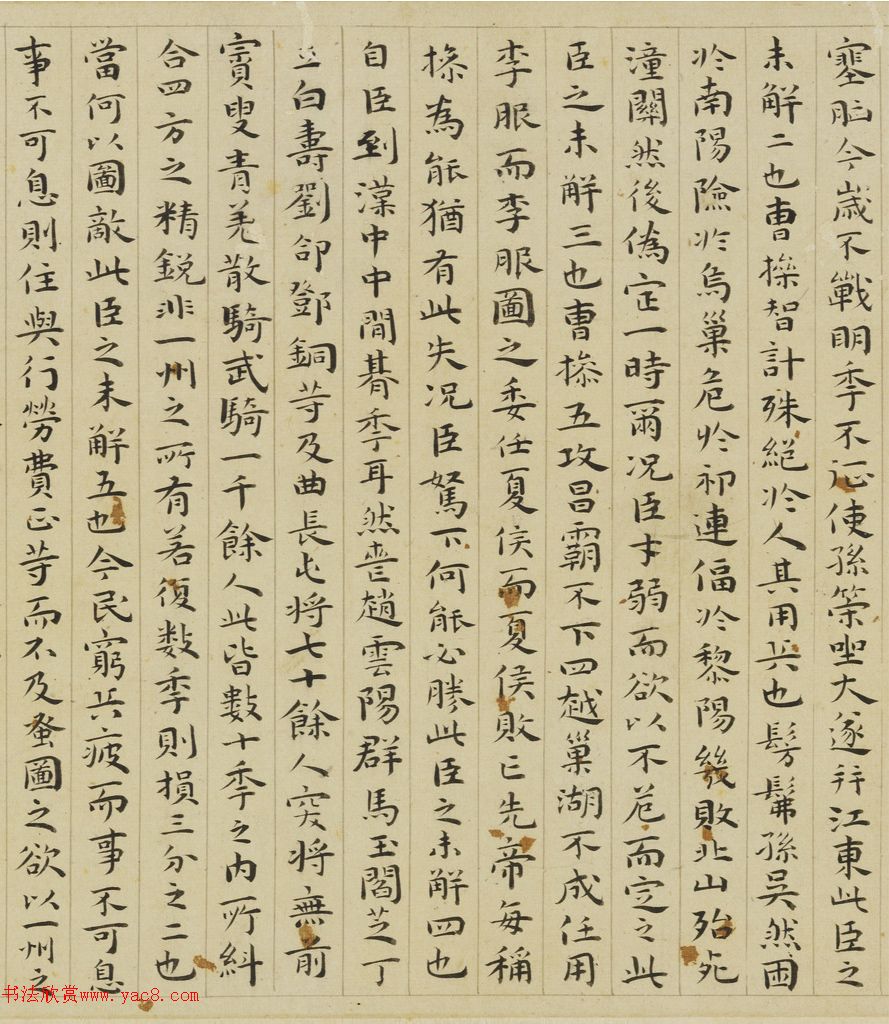 塞胸今歲不戰明季不征使孫策坐大遂并江東此臣之
未解二也曹操智計殊絕於人其用兵也髣髴孫吳然困
於南陽險於烏巢危於祁連偪於黎陽幾敗北山殆死
潼關然後偽定一時爾况臣才弱而欲以不危而定之此
臣之未解三也曹操五攻昌霸不下四越巢湖不成任用
李服而李服圖之委任夏侯而夏侯敗亡先帝每稱
操為能猶有此失况臣駑下何能必勝此臣之未解四也
自臣到漢中中間朞季耳然喪趙雲陽群馬玉閻芝丁
立白壽劉郃鄧銅等及曲長屯將七十餘人突將無前
賨叟青羌散騎武騎一千餘人此皆數十季之内所糾
合四方之精銳非一州之所有若復數季則損三分之二也
當何以圖敵此臣之未解五也今民窮兵疲而事不可息
事不可息則住與行勞費正等而不及蚤圖之欲以一州之
书法欣赏www.yac8.com